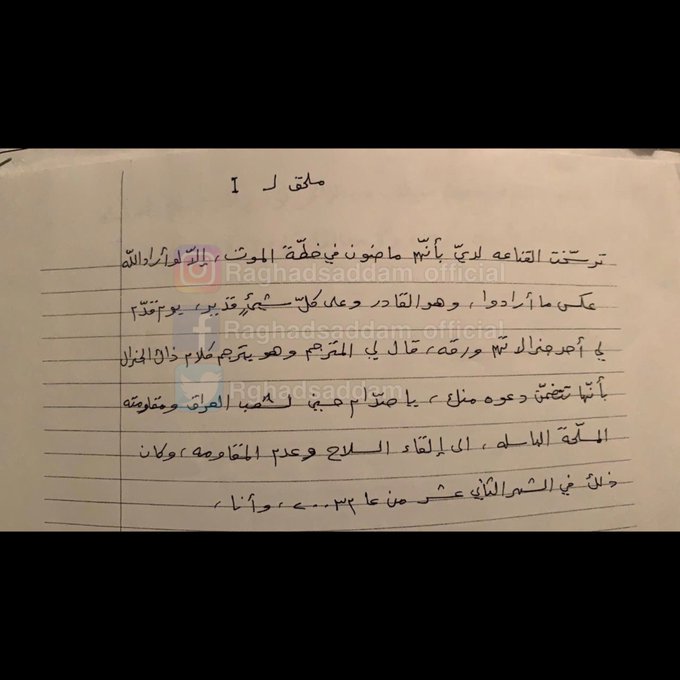 ملحق لـ I
ترسّخت القناعه لديّ بأنّهم ماضون في خطّة الموت، إلاّ لو أراد اللّه
عكس ما أرادوا، وهو القادر وعلى كلّ شيئٍ قدير، يوم قدّم
لي أحد جنرالاتهم ورقه، قال لي المترجم وهو يترجم كلام ذلك الجنرال
بأنّها تتضمّن دعوه منك، يا صدّام حسين لشعب العراق ومقاومته
المسلّحة الباسله، الى إلقاء السلاح وعدم المقاومه، وكان
ذلك في الشهر الثاني عشر من عام ٢٠٠٣، وأنا،
Raghadsaddam_official
Raghadsaddam_official
Rghadsaddam